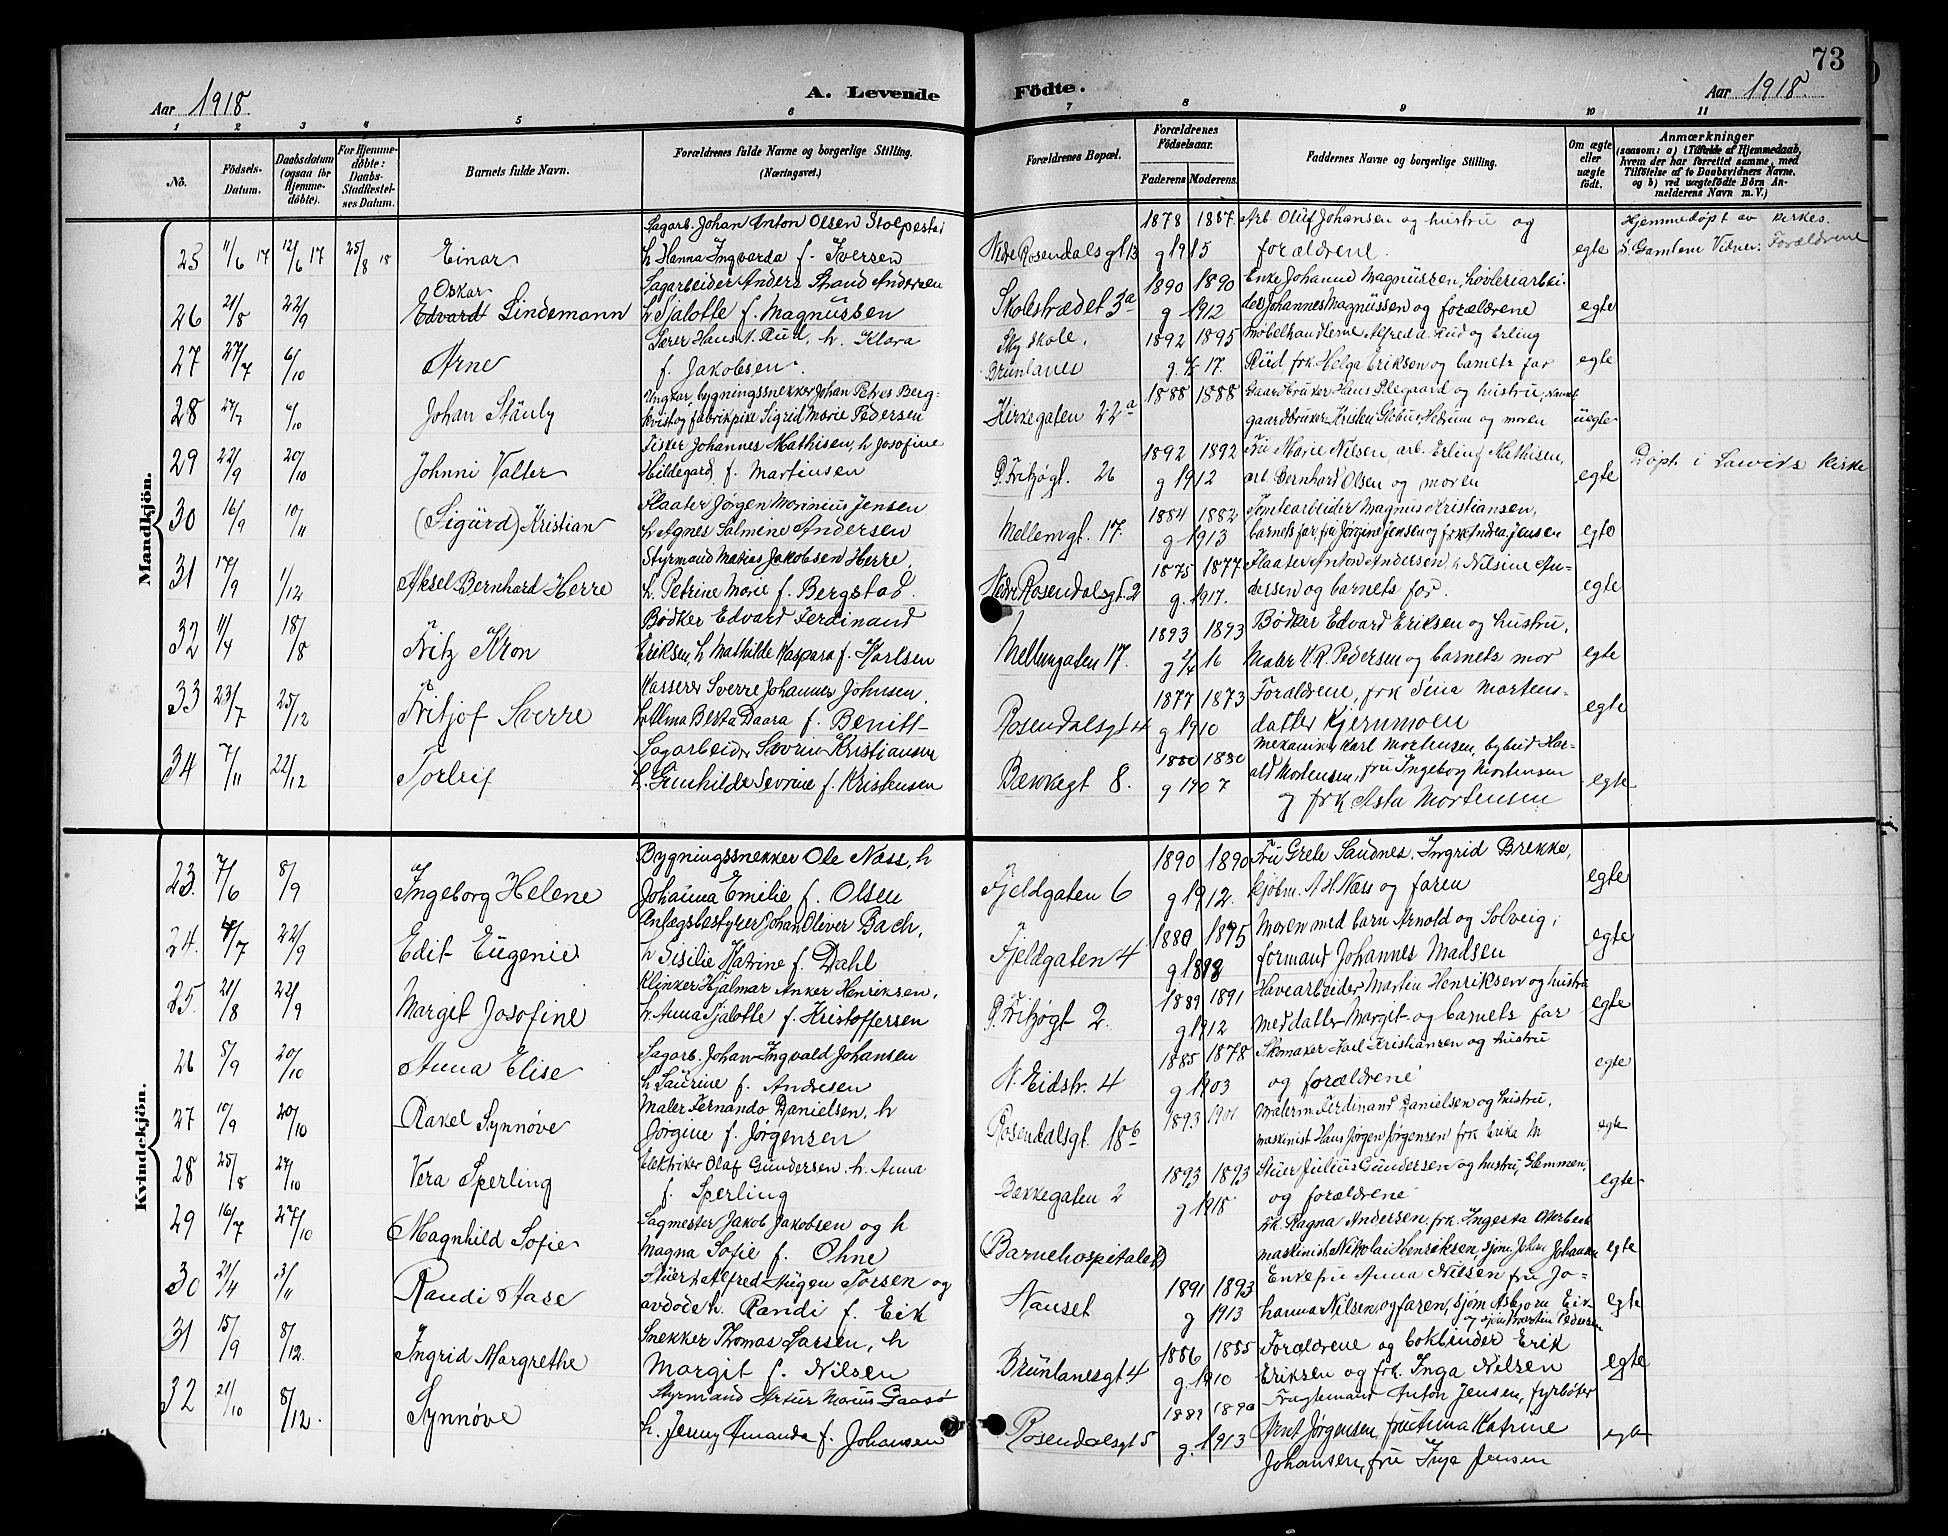 73
Aar 1918
A. Levende
Födte.
Aar 1918.
1 2 3 4 5 6 7 8 9 10 11
No.
Födsels-Datum.
Daabsdatum (ogsaa for Hjemme-döbte).
For Hjemme-döbte: Daabs-Stadfæstel-ses Datum.
Barnets fulde Navn.
Forældrenes fulde Navne og borgerlige Stilling.
(Næringsvei.)
Forældrenes Bopæl.
Forældrenes Födselsaar.
Faderens. Moderens.
Faddernes Navne og borgerlige Stilling.
Om ægte eller uægte födt.
Anmærkninger
(saasom: a) i Tilfælde af Hjemmedaab,
hvem der har forrettet samme, med
Tilföielse af to Daabsvidners Navne,
og b) ved uægtefödte Börn An-
melderens Navn m. V.)
Mandkjön.
Sagarb. Johan Anton Olsen Stolpestad 1878 1887. Arb. Oluf Johansen og hustru og Hjemmedøpt av kirkes.
25 11/6 17 12/6 17 25/8 18 Einar h Hanna Ingvarda f. Iversen Nedre Rosendalsgt 13 g 1915 forældrene. egte S. Gamlem Vidner: Forældrene
Oskar Sagarbeider Anders Strand Andersen 1890 1890 Enke Johanne Magnussen, høvleriarbei-
26 21/8 22/9 Edvard Lindemann h Sjalotte f. Magnussen Skolestrædet 3a g 1912 der Johannes Magnussen og forældrene egte
Lærer Hans A. Rud, h. Klara Sky skole, 1892 1895 Møbelhandlerne Alfred A. Rud og Erling
27 27/7 6/10 Arne f. Jakobsen. Brunlanes g. 17. Rud frk Helga Eriksen og barnets far egte
Ungkar, bygningssnekker Johan Petrus Berg- 1888 1888 Gaardbruker Hans Stegaard og hustru,
28 27/7 6/10 Johan Stäuly kvist og fabrikpike Sigrid Marie Pedersen Kirkegaten 22a gaardbruker Kristen Hedrum og moren uegte
Fisker Johannes Mathisen, h Josofine 1892 1892 Fru Marie Nilsen arb. Erling Mathisen,
29 22/9 20/10 Johnni Valter Hildegard f. Martinsen P. Fritzøgt. 26 g 1912 arb. Bernhard Olsen og moren egte Døpt i Larviks kirke
Flaater Jørgen Morinius Jensen 1884 1882 Tomtearbeider Magnus Kristiansen,
30 16/9 10/11 (Sigurd) Kristian h Agnes Salmine Andersen Mellemgt. 17. g 1913 barnets far, fru Jørgine Jensen og frk Andrea Jensen egte
Styrmand Matias Jakobsen Herre, 1875 1877 Flaater Anton Andersen, h Nilsine An-
31 17/9 1/12 Aksel Bernhard Herre h. Petrine Marie f. Bergstad. Nedre Rosendalsgt. 2 g. 1917. dersen og barnets far. egte
Bødker Edvard Ferdinand 1893 1893 Bødker Edvard Eriksen og hustru,
32 11/4 18/8 Fritz Kron Eriksen, h Mathilde Kaspara f. Karlsen Mellemgaten 17. g 16 Maler K. R. Pedersen og barnets mor egte
Kasserer Sverre Johannes Johnsen, 1877 1873 Forældrene, frk Sina Martens-
33 23/7 25/12 Fritjof Sverre h Alma Berta Daara f. Benitt Rosendalsgt 4 g 1910 datter Kjernmoen egte
Sagarbeider Søvrin Kristiansen 1880 1880 Mekaniker Karl Mortensen, bybud Har-
34 7/11 22/12 Torleif h. Gunhilde Sevrine f. Kristensen Bekkegt 8. g 1907 ald Mortensen, fru Ingeborg Mortensen egte
og frk Asta Mortensen
Kvindekjön.
Bygningssnekker Ole Næss, h 1890 1890 Fru Grete Sandnes, Ingrid Brekke,
23. 7/6 8/9 Ingeborg Helene Johanna Emilie f. Olsen Fjeldgaten 6 g 1912. kjøbm. A. H. Næss og faren egte
Anlægsbestyrer Johan Oliver Bach, 1880 1875 Moren med barn Arnold og Solveig,
24. /7 22/9 Edit Eugenie h Sisilie Katrine f. Dahl Fjeldgaten 4 g 1898 formand Johannes Madsen egte
Klinker Hjalmar Anker Henriksen, 1889 1891 Havearbeider Martin Henriksen og hustru
25. 21/8 22/9 Margit Josofine h. Anna Sjalotte f. Kristoffersen P. Fritzøgt 2. g 1912 med datter Margit og barnets far egte
Sagarb. Johan Ingvald Johansen 1885 1878 Skomaker Karl Kristiansen og hustru
26 5/9 20/10 Anna Elise h Laurine f. Andresen N. Eidstr. 4 g 1903 og forældrene egte
Maler Fernando Danielsen, h 1893 1901 Malerm. Ferdinand Danielsen og hustru,
27 10/9 20/10 Rakel Synnøve Jørgine f. Jørgensen Rosendalsgt. 18b maskinist Hans Jørgen Jørgensen frk Erika M egte
Elektriker Olaf Gundersen, h. Anna 1893 1893 Stuer Julius Gundersen og hustru, Glemmen,
28 25/8 27/10 Vera Sperling f. Sperling Bekkegaten 2 g 1918 og forældrene egte
Sagmester Jakob Jakobsen og h Frk. Ragna Andersen, frk. Ingerta Otterbech
29 16/7 27/10 Magnhild Sofie Magna Sofie f. Ohne Barnehospitalet maskinist Nikolai Henriksen, sjøm. Johan Johansen egte
Stuert Alfred Augen Torsen og 1891 1893 Enkefru Anna Nilsen fru Jo-
30 29/4 3/11 Randi Aase avdøde h. Randi f. Eik Nanset g 1913 hanna Nilsen, og faren, sjøm Asbjørn Eik egte
og sjøm Martin Pedersen
Snekker Thomas Larsen, h 1886 1885 Forældrene og bokbinder Erik
31 15/9 8/12. Ingrid Margrethe Margit f. Nilsen Brunlanesgt 4 g. 1910 Eriksen og frk. Inga Nilsen egte
Styrmand Artur Marius Gaasø 1889 1890 Fragtemand Anton Jensen, fyrbøter
32 21/10 8/12. Synnøve h. Jenny Amanda f. Johansen Rosendalsgt 5 g. 1913 Arnt Jørgensen, fru Anna Katrine egte
Johansen, fru Inga Jensen